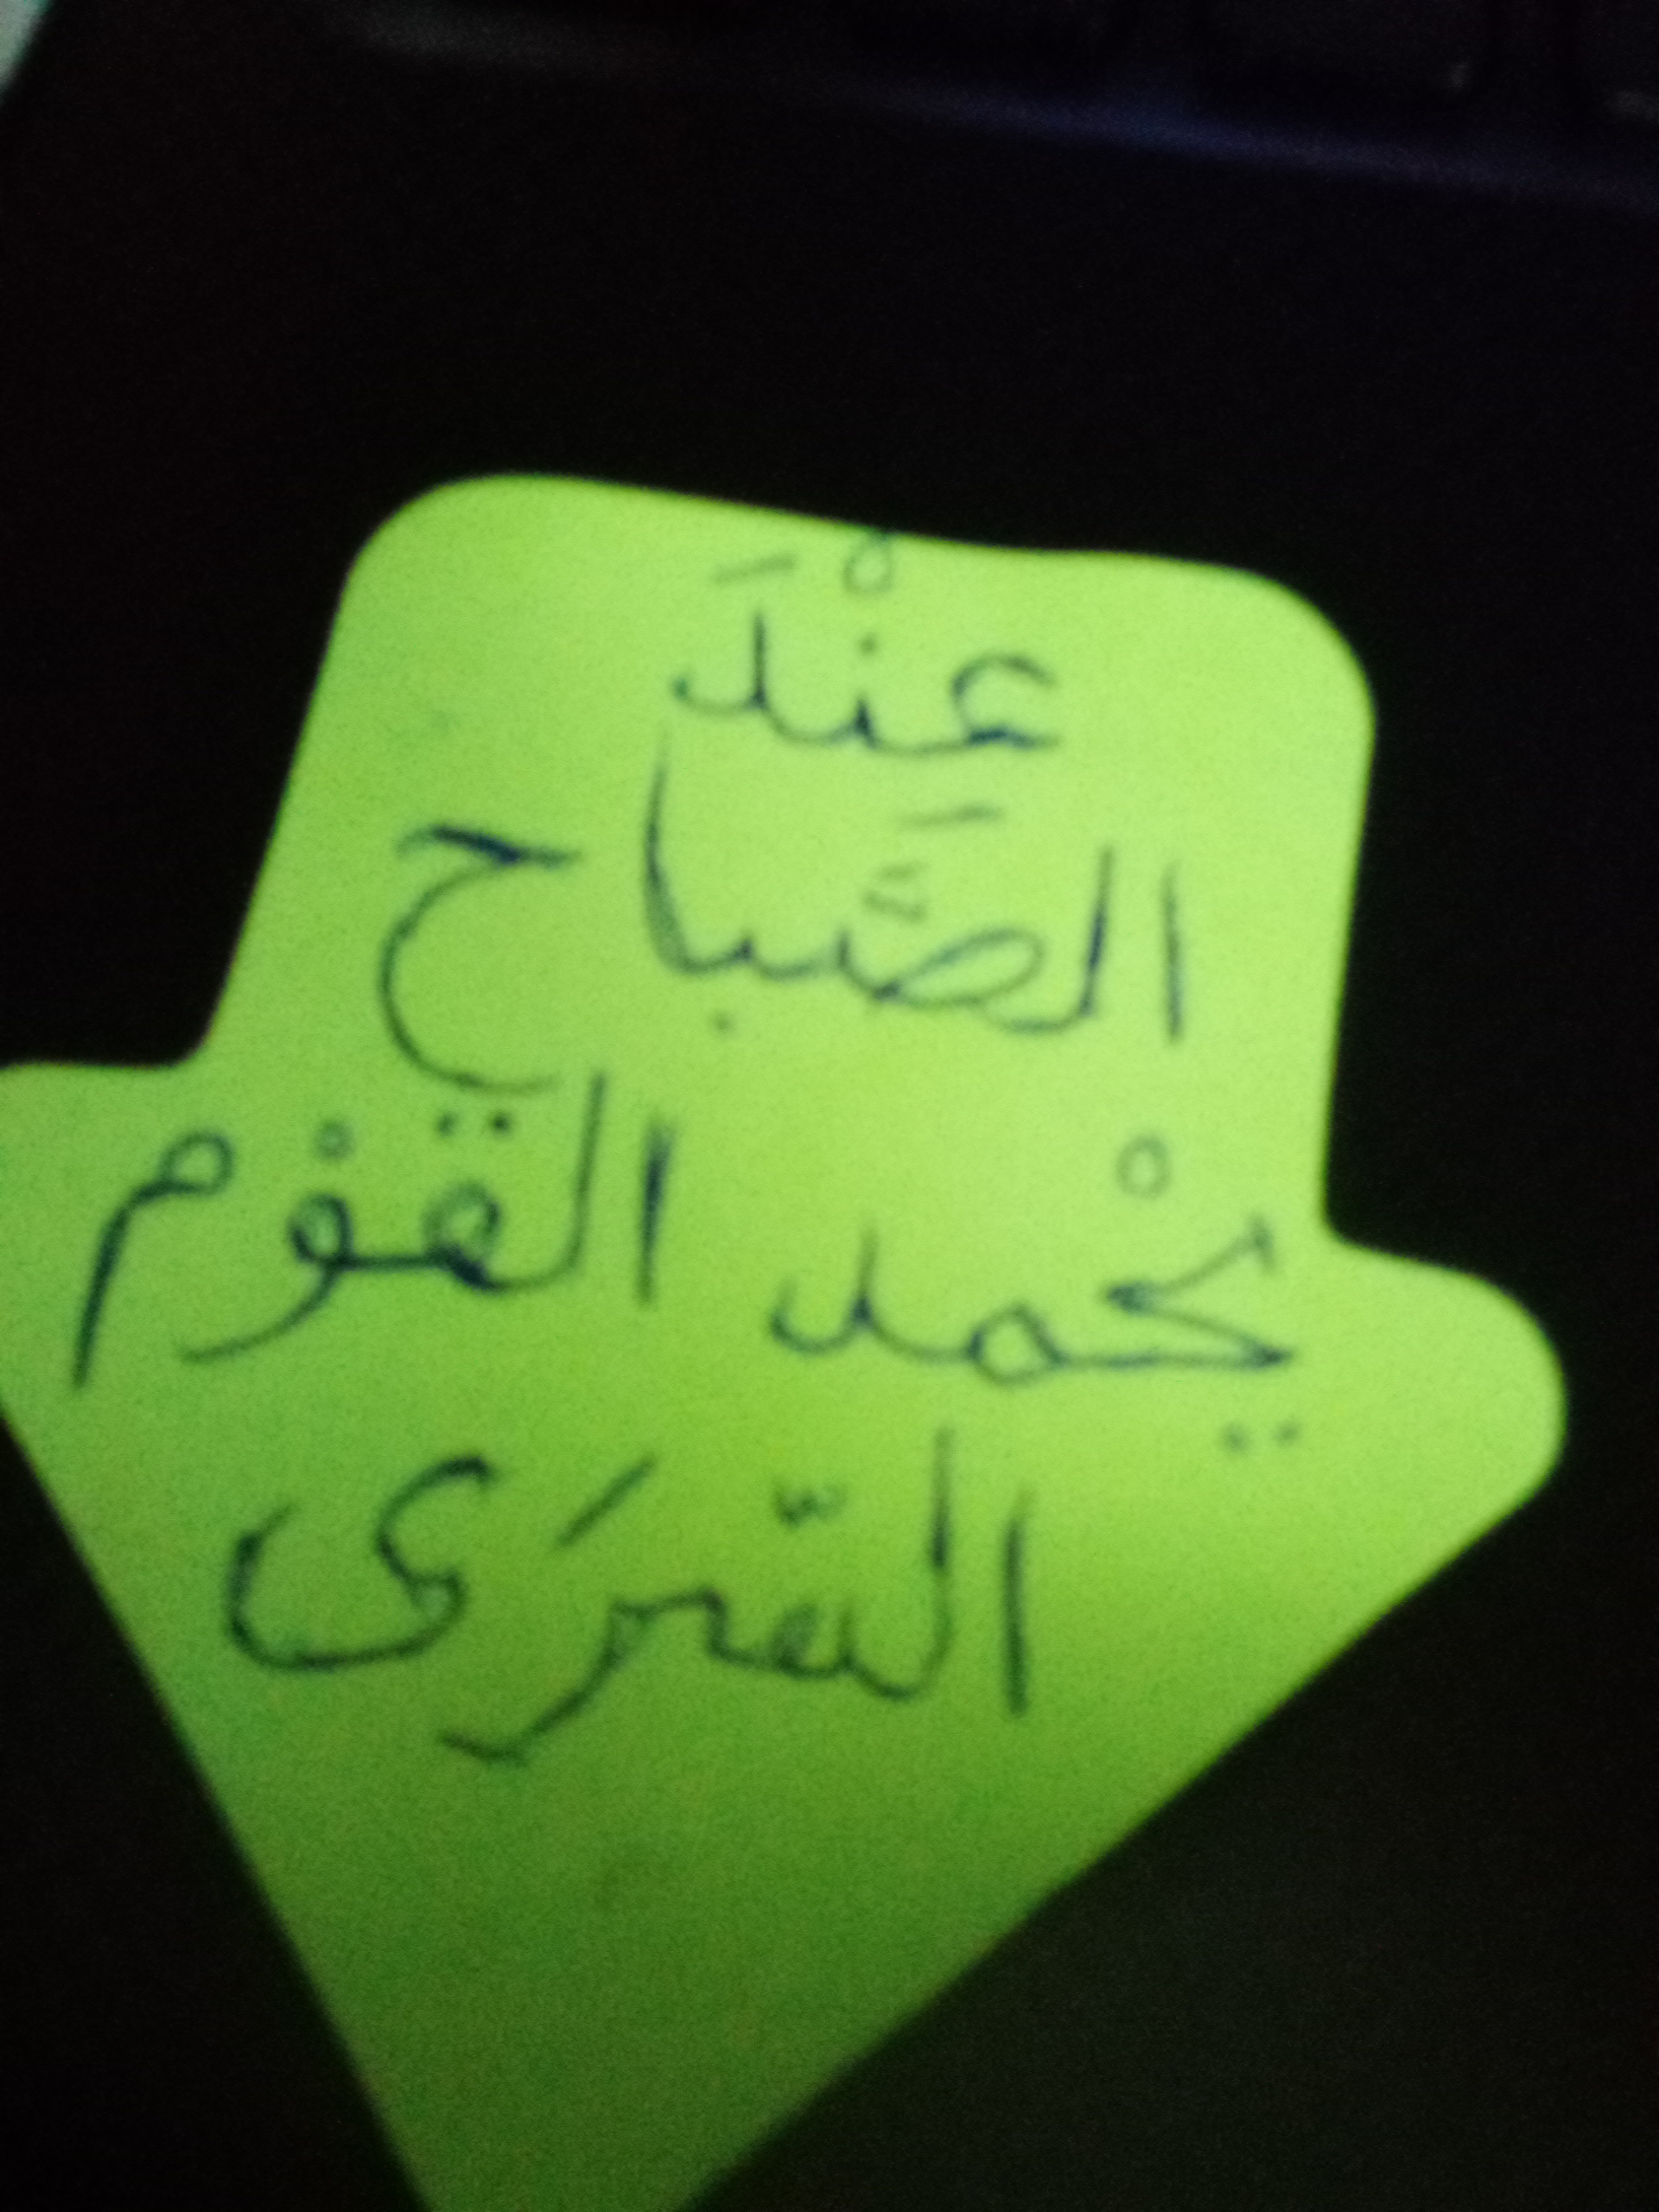 عنْدَ
الصَّباح
يحْمد القوْم
السّرَى